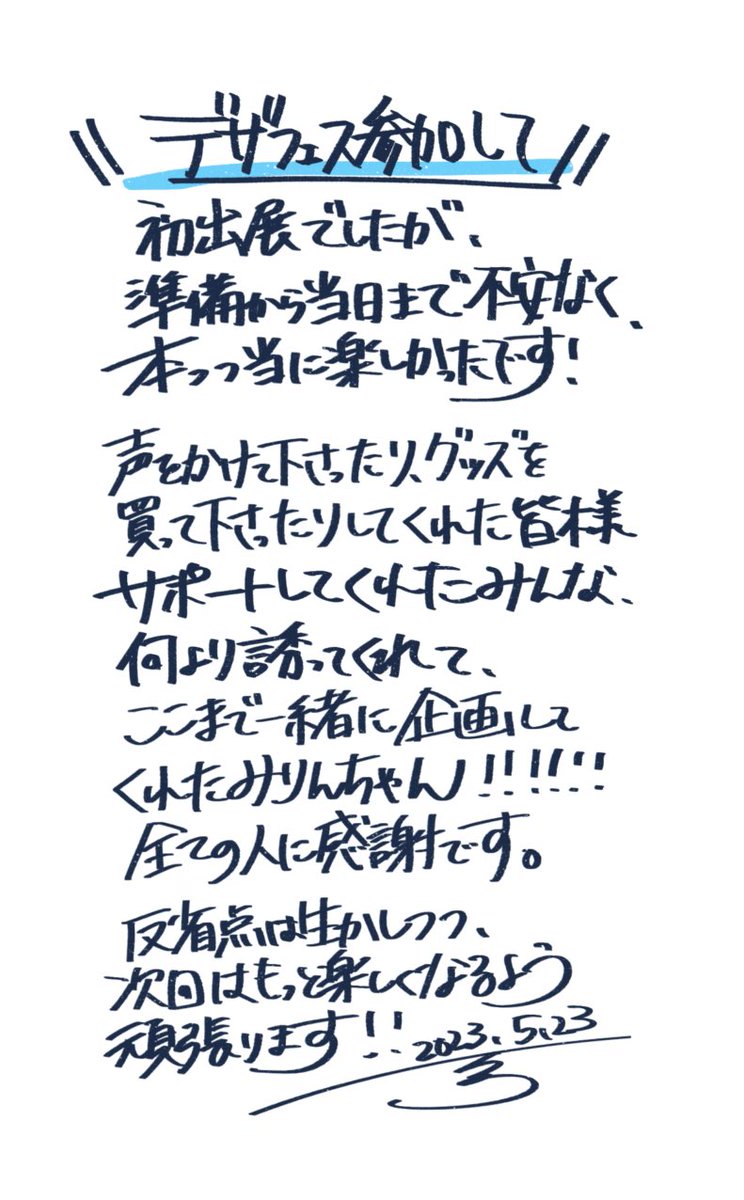 \\ デザフェス参加して //
初出展でしたが、
準備から当日まで不安なく、
本っっ当に楽しかったです!
声をかけて下さったり、グッズを
買って下さったりしてくれた皆様
サポートしてくれたみんな、
何より誘ってくれて、
ここまで一緒に企画して
くれたみりんちゃん!!!!!!
全ての人に感謝です。
反省点は生かしつつ、
次回はもっと楽しくなるよう
頑張ります!! 2023.5.23